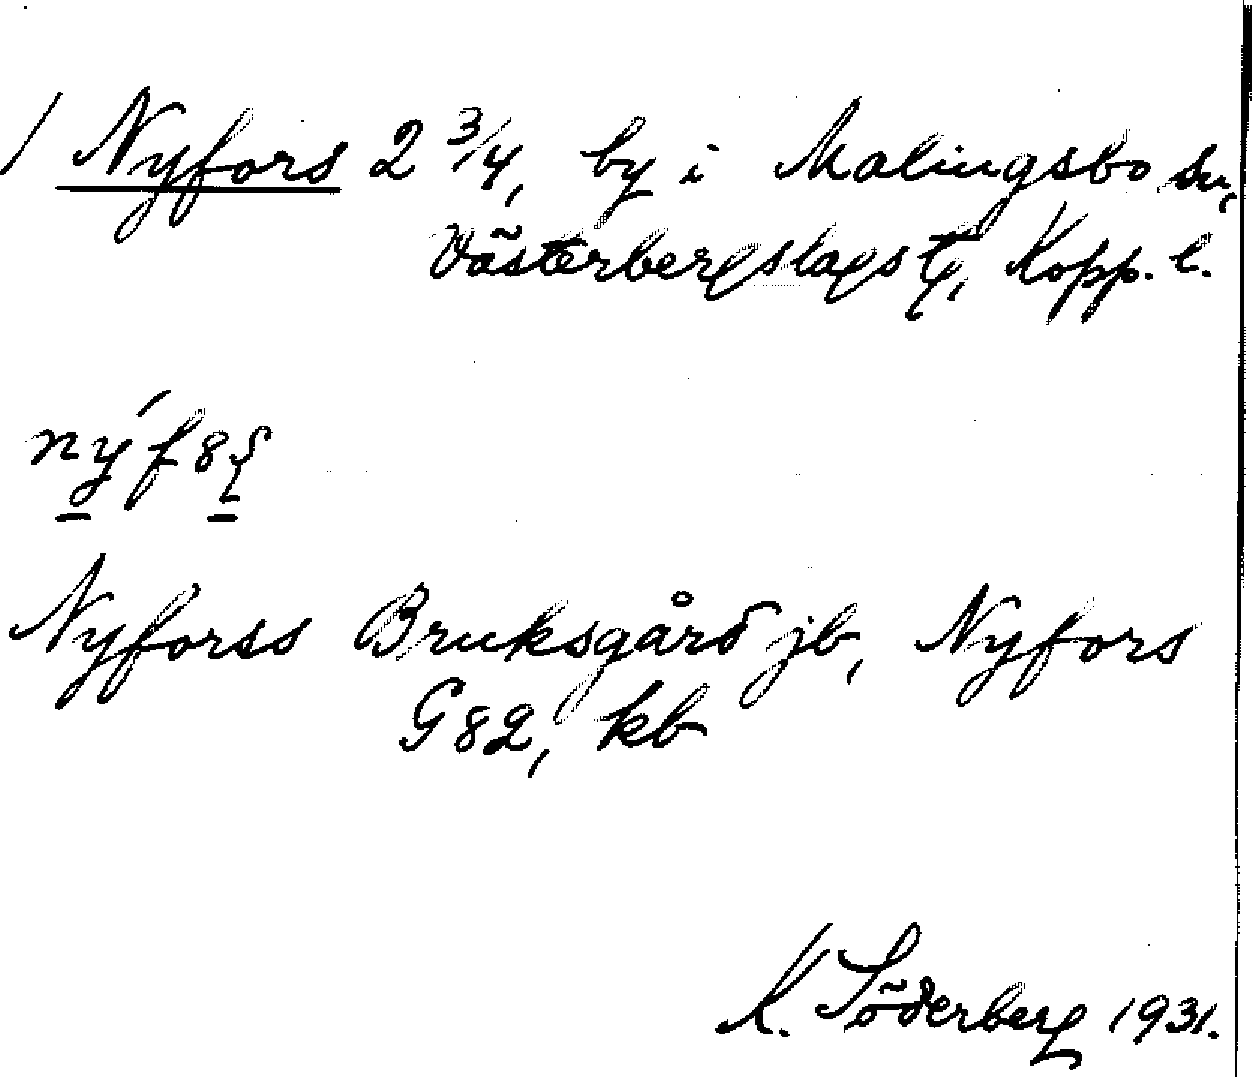 / Nyfors 2 3/4, by i Malingsbo sn,
Västerbergslags tg, Kopp. l.
Nyforss Bruksgård jb, Nyfors
G 82, kb
K. Söderberg 1931.